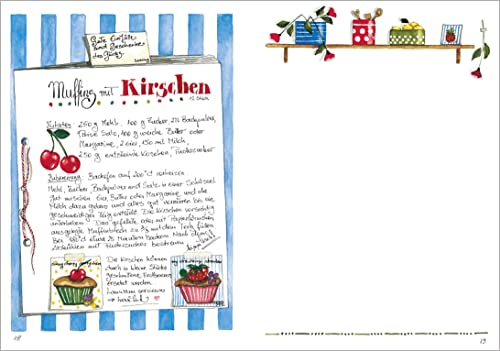 Gute Einfälle
sind Geschenke
des Glücks.
Lessing
Muffins mit Kirschen
12 Stück
Zutaten: 250 g Mehl, 100 g Zucker, 2 TL Backpulver,
1 Prise Salz, 100 g weiche Butter oder
Margarine, 2 Eier, 150 ml Milch,
250 g entsteinte Kirschen, Puderzucker
Zubereitung: Backofen auf 200°C vorheizen
Mehl, Zucker, Backpulver und Salz in einer Schüssel
gut mischen. Eier, Butter oder Margarine und die
Milch dazu geben und alles gut verrühren bis ein
geschmeidiger Teig entsteht. Die Kirschen vorsichtig
unterheben. Das gefettete oder mit Papierförmchen
ausgelegte Muffinblech zu 3/4 mit dem Teig füllen
Bei 180°C etwa 25 Minuten backen. Nach dem
Auskühlen mit Puderzucker bestreuen
Die Kirschen können
auch durch kleine Stücke
geschnittene Erdbeeren
ersetzt werden.
Lauwarm servieren
→ himmlisch!
18
19